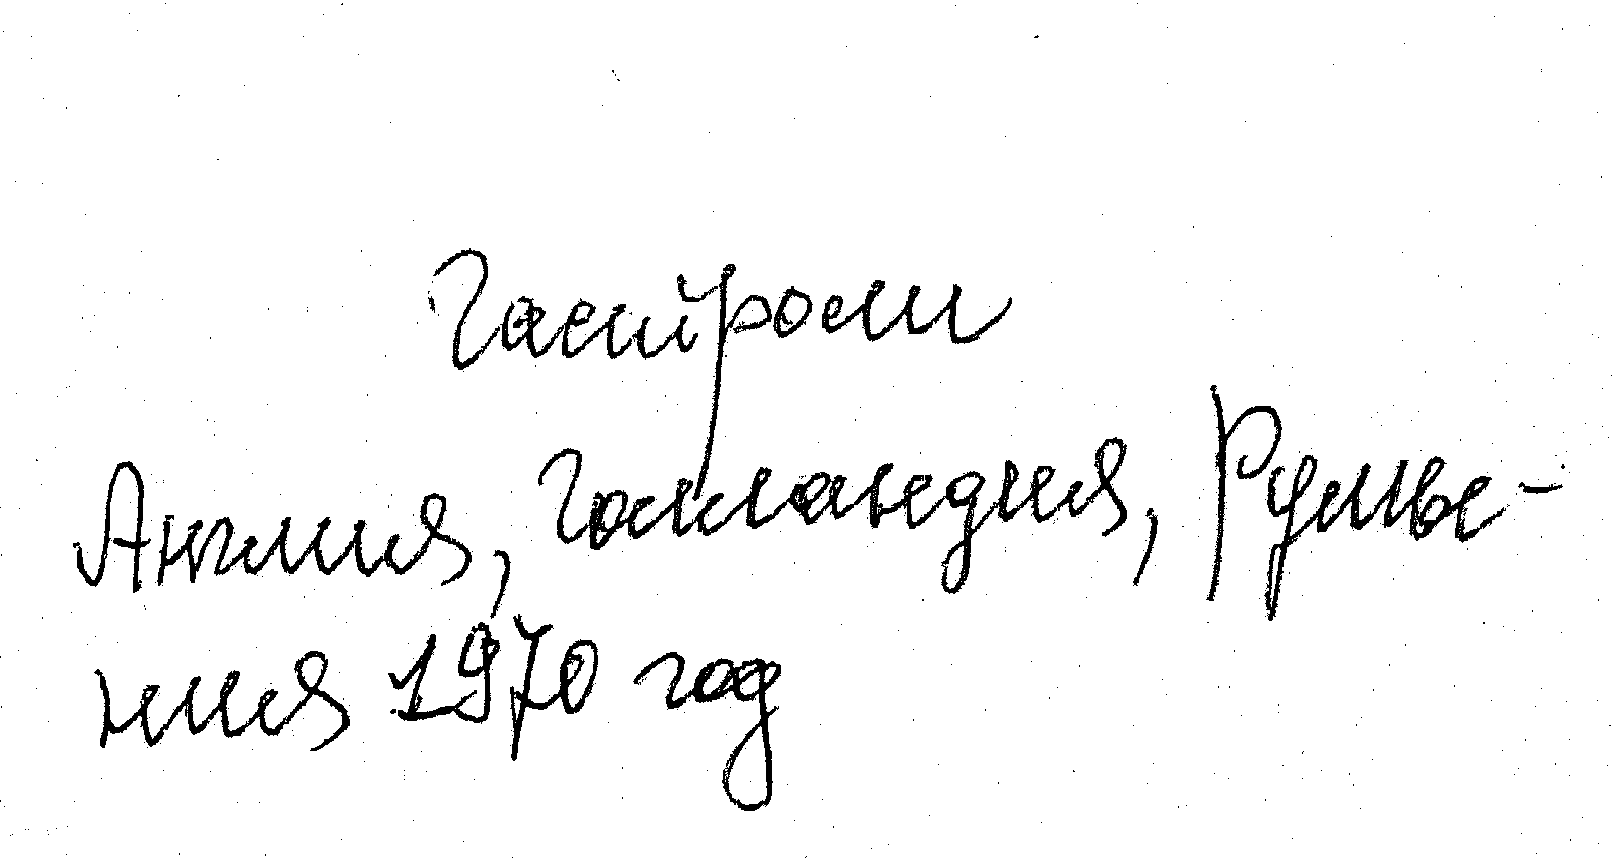 Гастроли
Англия, Голландия, Румы-
ния 1970 год